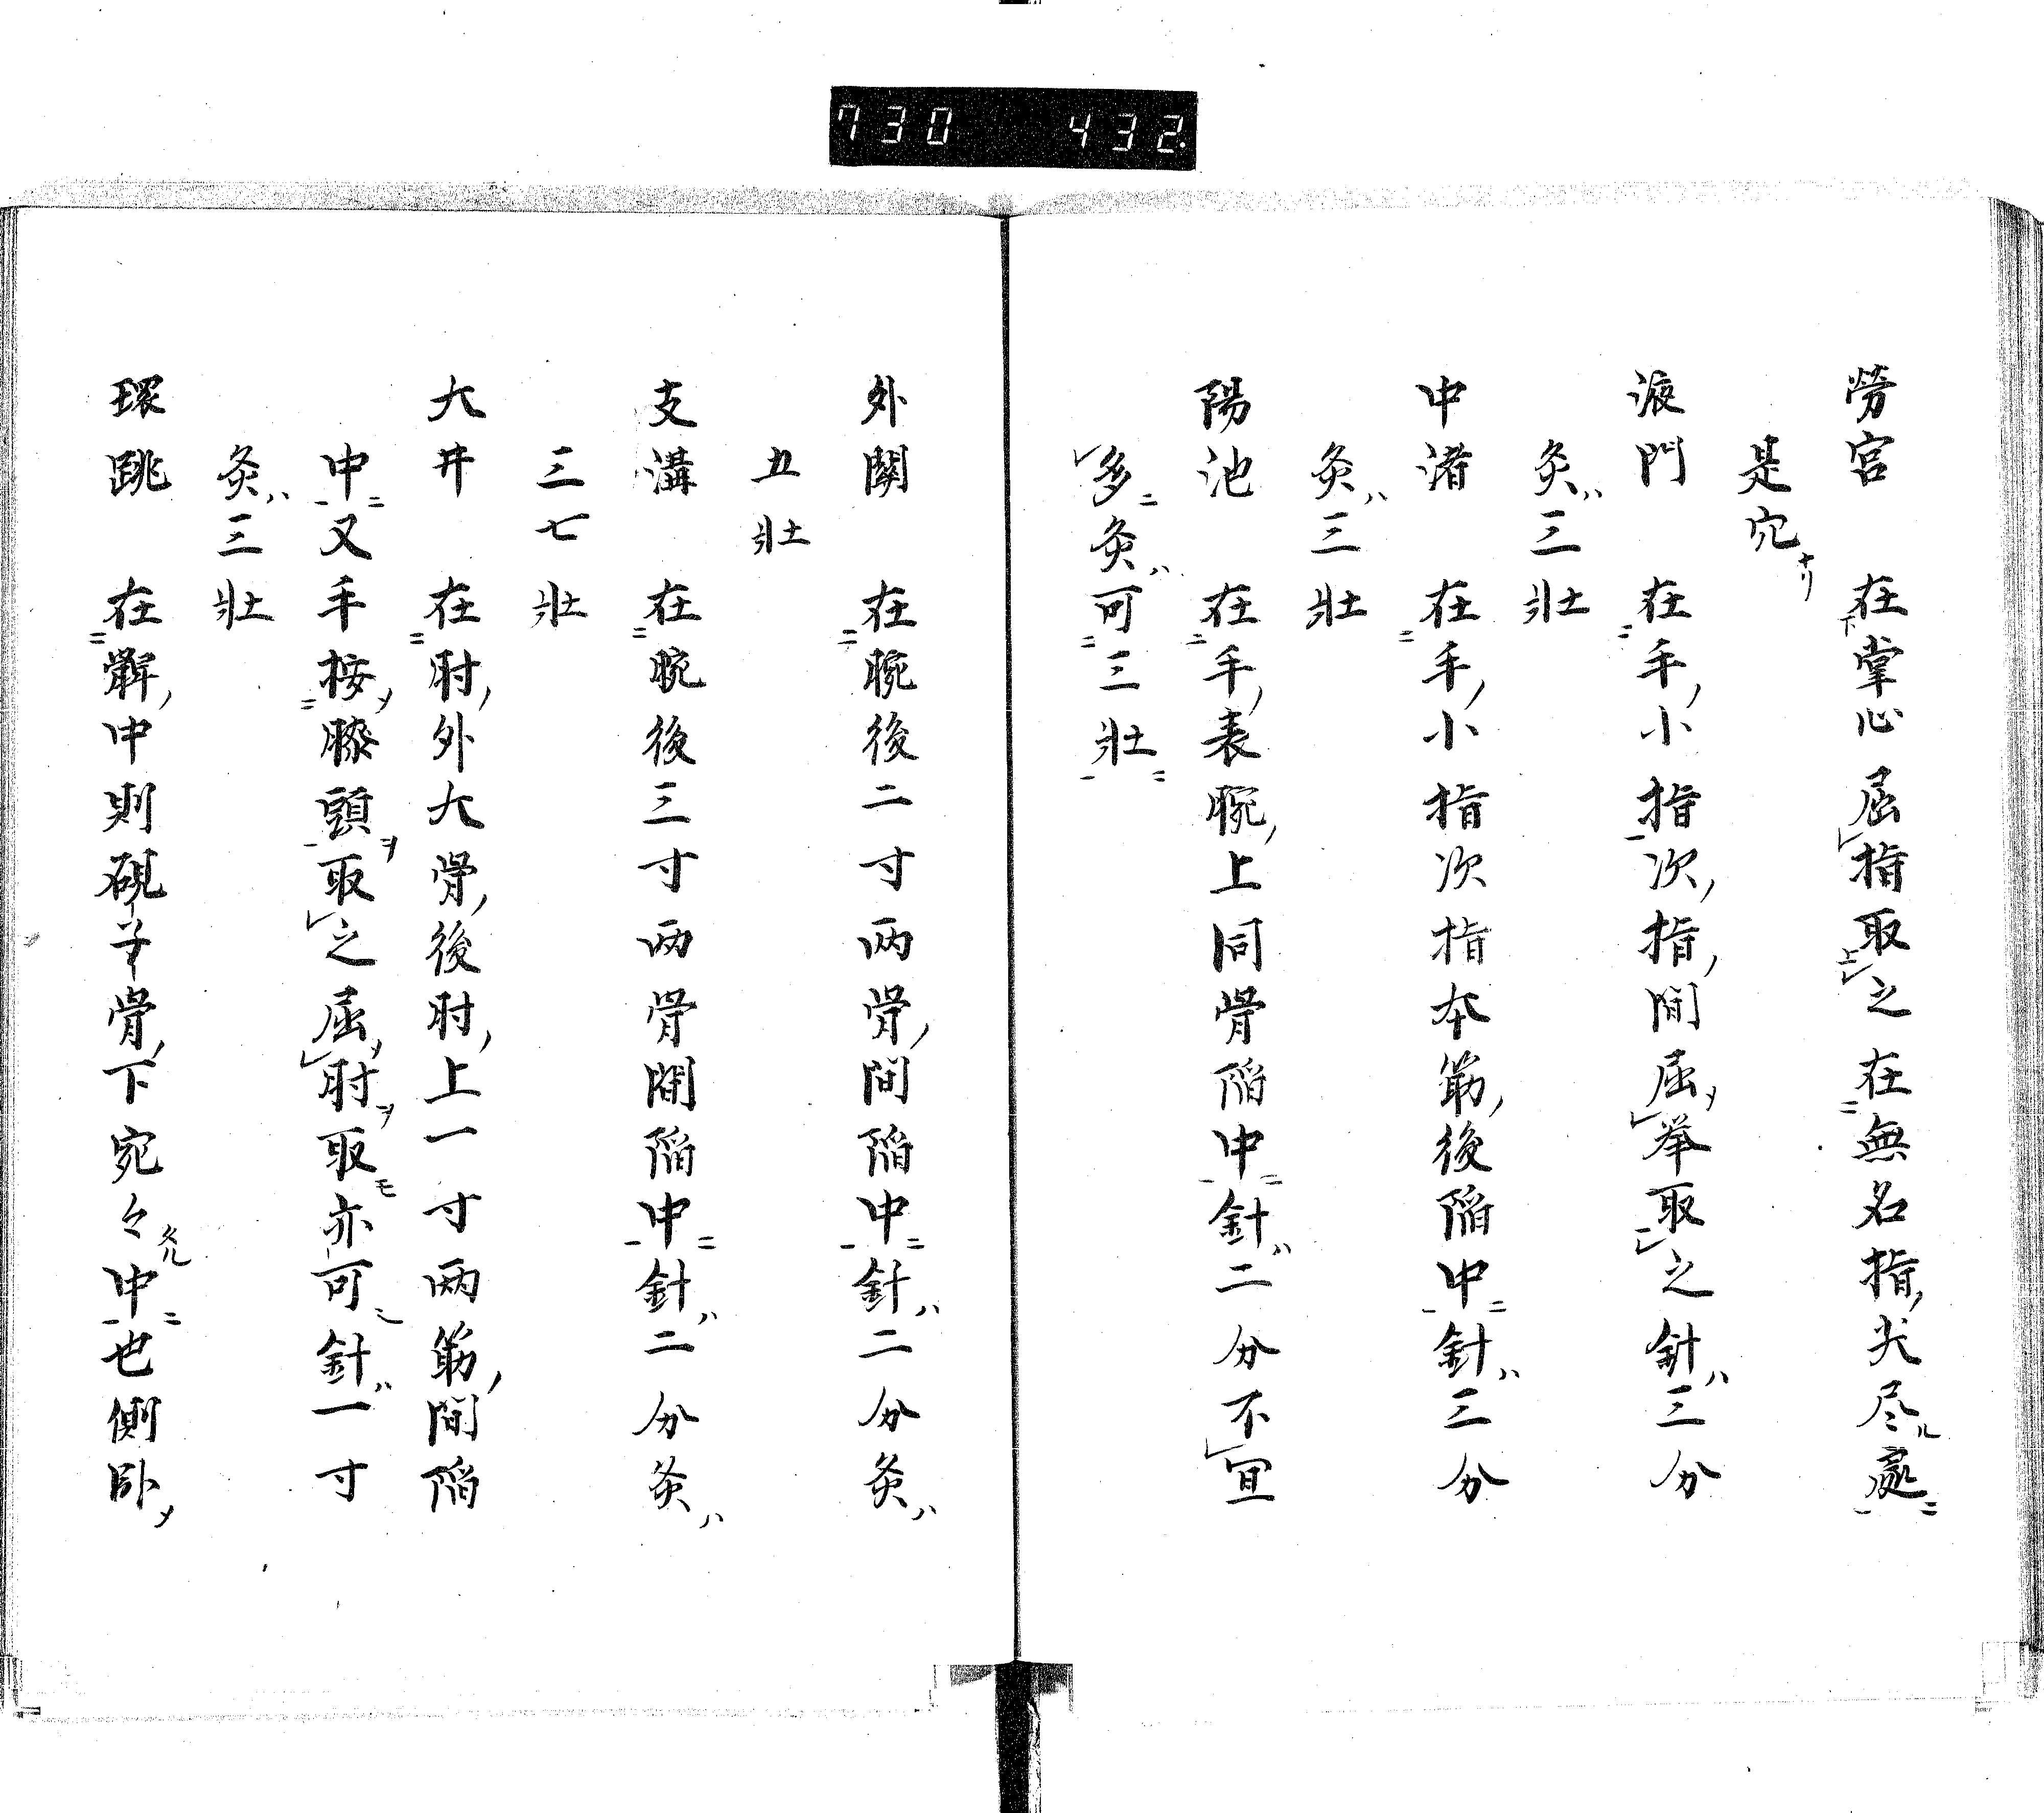 730 432
勞宮 在掌心屈指取之在無名指尖尽處
是穴ナリ
液門 在手小指次指間屈〆挙取之針ハ三分
灸ハ三壮
中渚 在手小指次指本節後陥中針ハ三分
灸ハ三壮
陽池 在手表腕上同骨陥中針ハ二分不宜
多灸ハ可三壮
外関 在腕後二寸両骨間陥中針ハ二分灸ハ
五壮
支溝 在腕後三寸両骨間陥中針ハ二分灸ハ
三七壮
大井 在肘外大骨後肘上一寸両筋間陥
中又手按〆膝頭ヲ取之屈〆肘ヲ取モ亦可針ハ一寸
灸ハ三壮
環跳 在髀中則硯子骨下宛々タル中也側臥〆